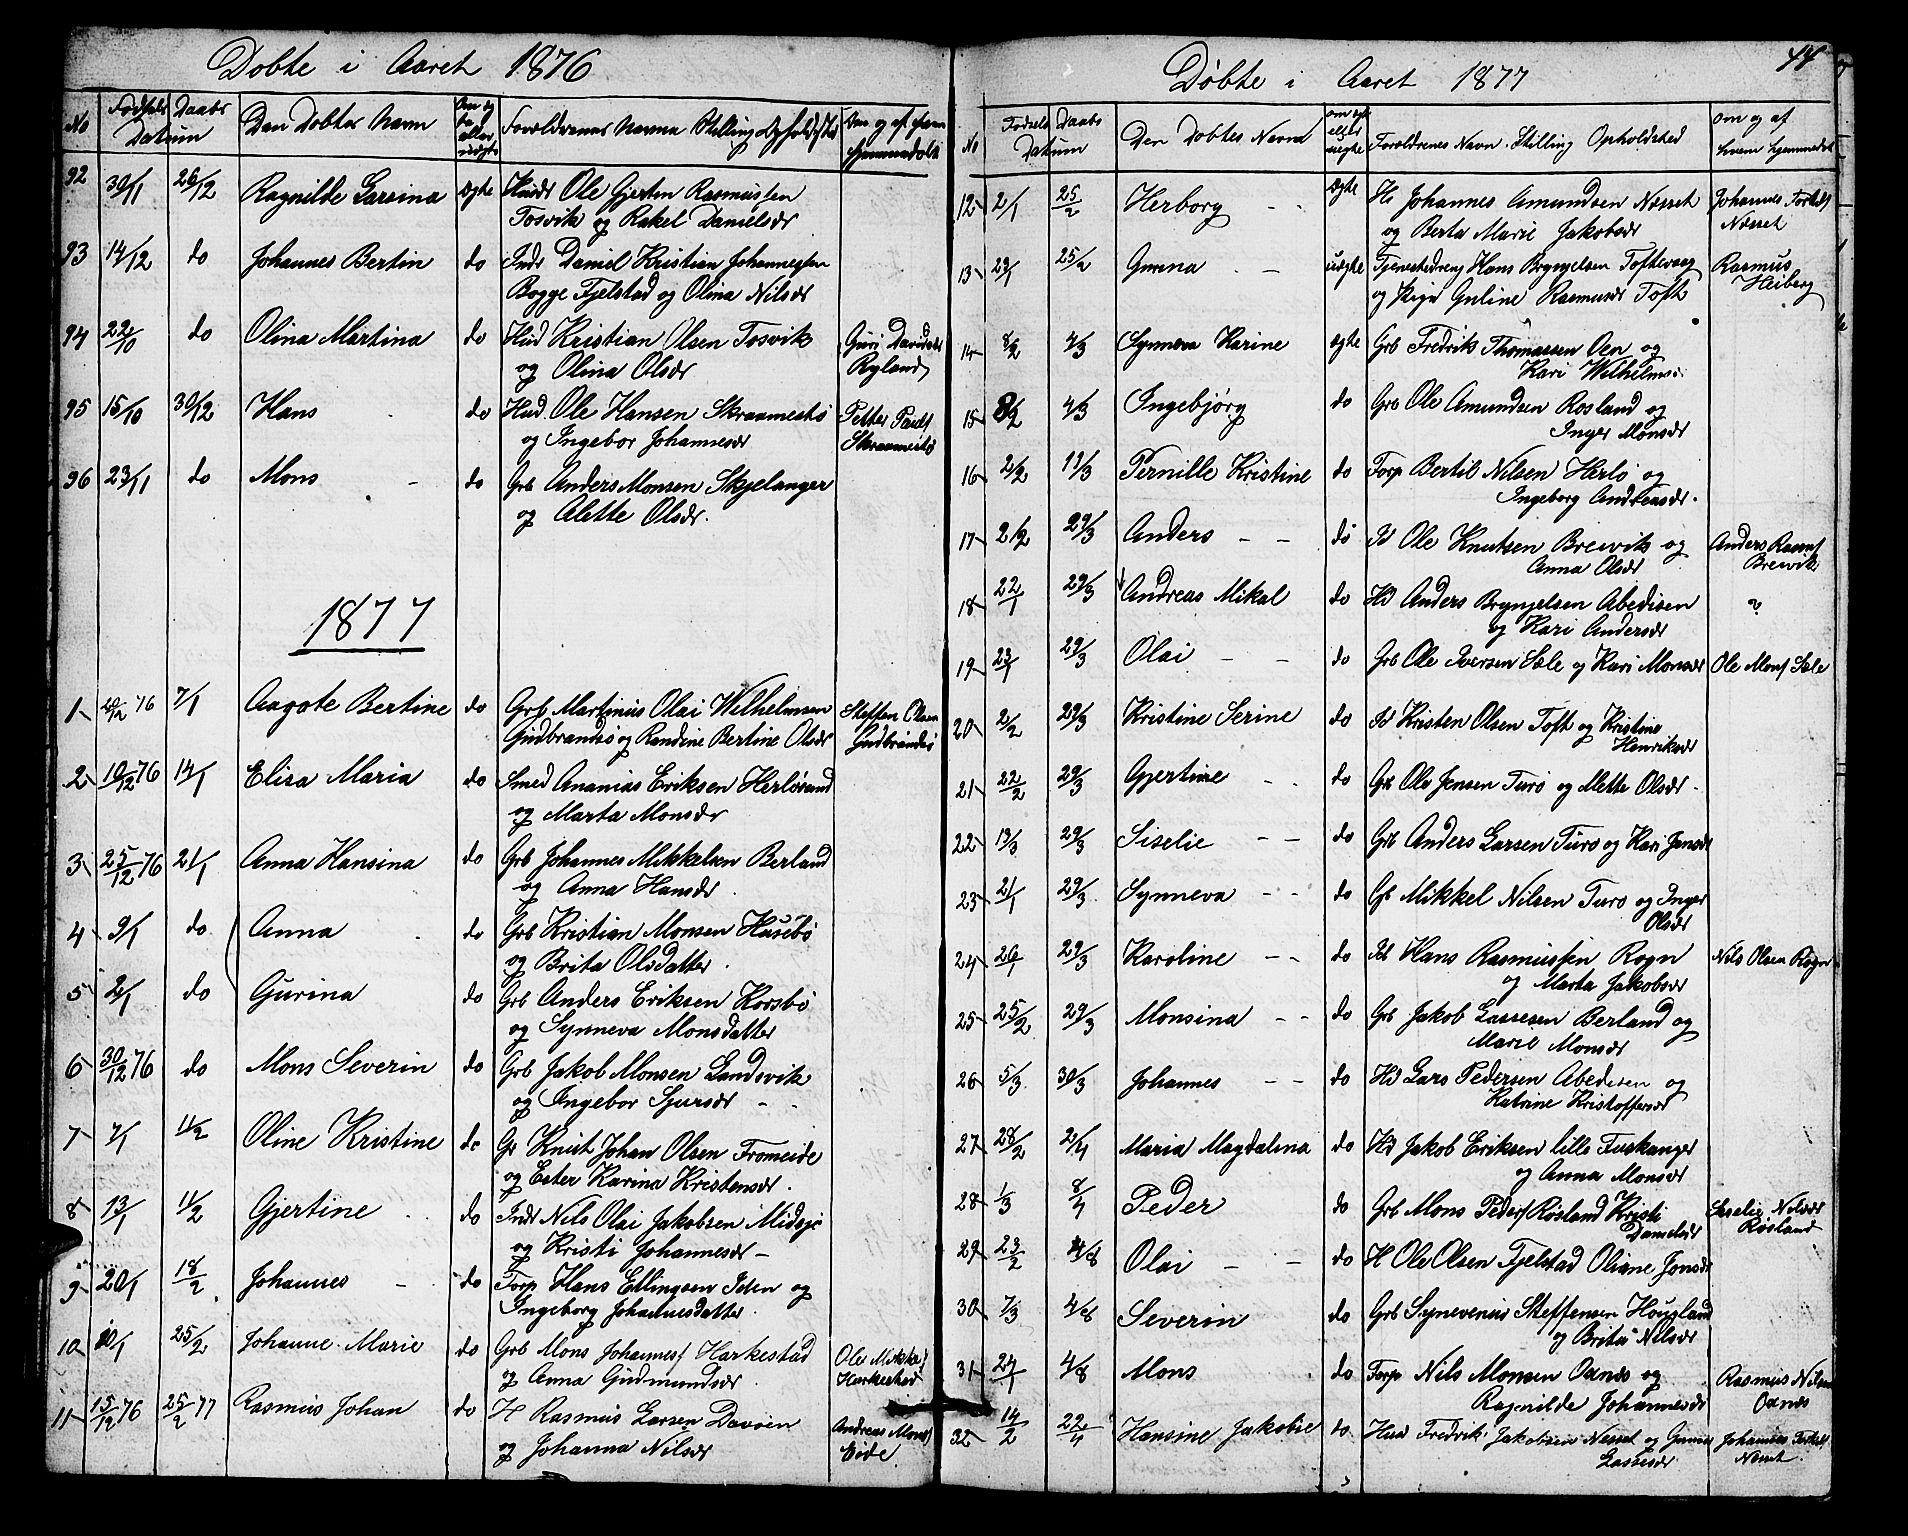 Døbte i Aaret 1876
No Fødsels Daabs Datum Den Døbtes Navn Om ægte eller uægte Forældrenes Navne Stilling Opholdsted Om og af hvem hjemmedøbt
92 30/11 26/12 Ragnilde Larsina ægte Huusm Ole Gjerten Rasmussen
Tosvik og Rakel Danielsdr
93 14/12 do Johannes Bertin do Indr Daniel Kristian Johannessen
Bogge Fjelstad og Olina Nilsdr
94 22/10 do Olina Martina do Hud Kristian Olsen Tosvik Guri Davidsdr
og Olina Olsdr Ryland
95 15/10 30/12 Hans do Hud. Ole Hansen Skraamestø Petter
og Ingebor Johannesdr Skraamestø
96 23/11 do Mons do Grb Anders Monsen Skjelanger
og Alette Olsdr.
1877
1 20/12 76 7/1 Aagote Bertine do Grb Martinius Olai Wilhelmsen Steffen Olsen
Gudbrandsø og Randine Bertine Olsdr Gudbrandsø
2 10/12 76 14/1 Elisa Maria do Smed Ananias Eriksen Herløsund
og Marta Monsdr
3 25/12 76 21/1 Anna Hansina do Grb Johannes Mikkelsen Berland
og Anna Hansdr.
4 9/1 do Anna do Grb Kristian Monsen Husebø
og Brita Olsdatter.
5 2/1 do Gurina do Grb Anders Eriksen Korsbø
og Synneva Monsdatter
6 30/12 76 do Mons Severin do Grb Jakob Monsen Landsvik
og Ingebor Sjursdr
7 7/1 11/2 Oline Kristine do Gr Knut Johan Olsen Fromeide
og Ester Karina Kristensdr.
8 13/1 11/2 Gjertine do Indr Nils Olai Jakobsen Midsje
og Kristi Johannesdr
9 20/1 18/2 Johannes do Torp Hans Ellingsen Iden og
Ingeborg Johannesdatter.
10 20/1 25/2 Johanne Marie do Grb Mons Johannes/ Harkestad Ole Mikkel/
og Anna Gudmundsdr. Harkestad
11 15/12 76 25/2 77 Rasmus Johan do H Rasmus Larsen Davøen Andreas Mons/
og Johanna Nilsdr Eide
44
Døbte i Aaret 1877
No Fødsels Daabs Datum Den Døbtes Navn om ægte eller uægte Forældrenes Navn. Stilling Opholdsted om og af hvem hjemmedøbt
12 2/1 25/2 Herborg ægte H Johannes Amundsen Næsset Johannes Torkels/
og Berta Marie Jakobsdr Næsset
13 23/1 25/2 Gurina uægte Tjenestedreng Hans Brynjelsen Toftevaag Rasmus
og Pige Guline Rasmusdr Toft Heiberg
14 8/2 4/3 Synneva Karine ægte Grb Fredrik Thomassen Øen og
Kari Wilhelmsd.
15 8/2 4/3 Ingebjørg do Grb Ole Amundsen Rosland og
Inger Monsdr
16 2/2 11/3 Pernille Kristine do Torp Bertil Nilsen Herlø og
Ingeborg Andreasdr.
17 21/2 29/3 Anders do Id Ole Knutsen Breivik og Anders Rasm/
Anna Olsdr Breivik
18 22/1 29/3 Andreas Mikal do Hd Anders Brynjelsen Abedisen
og Kari Andersdr
19 23/1 29/3 Olai do Grb Ole Iversen Sæle og Kari Monsdr Ole Mons/ Sæle
20 2/2 29/3 Kristine Serine do Id Kristen Olsen Toft og Kristine
Henriksdr
21 22/2 29/3 Gjertine do Gr Ole Jensen Turø og Mette Olsdr.
22 13/3 29/3 Siselie do Grb Anders Larsen Turø og Kari Jensdr
23 21/1 29/3 Synneva do Gb Mikkel Nilsen Turø og Inger
Olsdr
24 26/1 29/3 Karoline do Id Hans Rasmussen Rogn Nils Olsen Rogn
og Marta Jakobsdr
25 25/2 29/3 Monsina do Grb Jakob Lassesen Berland og
Marie Monsdr
26 5/3 30/3 Johannes do Hd Lars Pedersen Abedisen og
Katrine Kristoffersdr
27 28/2 2/4 Maria Magdalina do Hd Jakob Eriksen lille Fuskanger
og Anna Monsdr
28 1/3 8/4 Peder do Grb Mons Peders/ Røsland Kristi Siselie Nilsdr
Danielsdr Røsland
29 23/2 4/8 Olai do H Ole Olsen Fjelstad Oliane Jonsdr
30 7/3 4/8 Severin do Grb Synevenius Steffensen Hougland
og Brita Nilsdr
31 24/1 4/8 Mons do Torp Nils Monsen Oxnæs og Rasmus Nilsen
Ragnilde Johannesdr Oxnæs
32 14/2 22/4 Hansine Jakobie do Hud Fredrik Jakobsen Næsset og Johannes Torkels/
Lassesdr Næsset